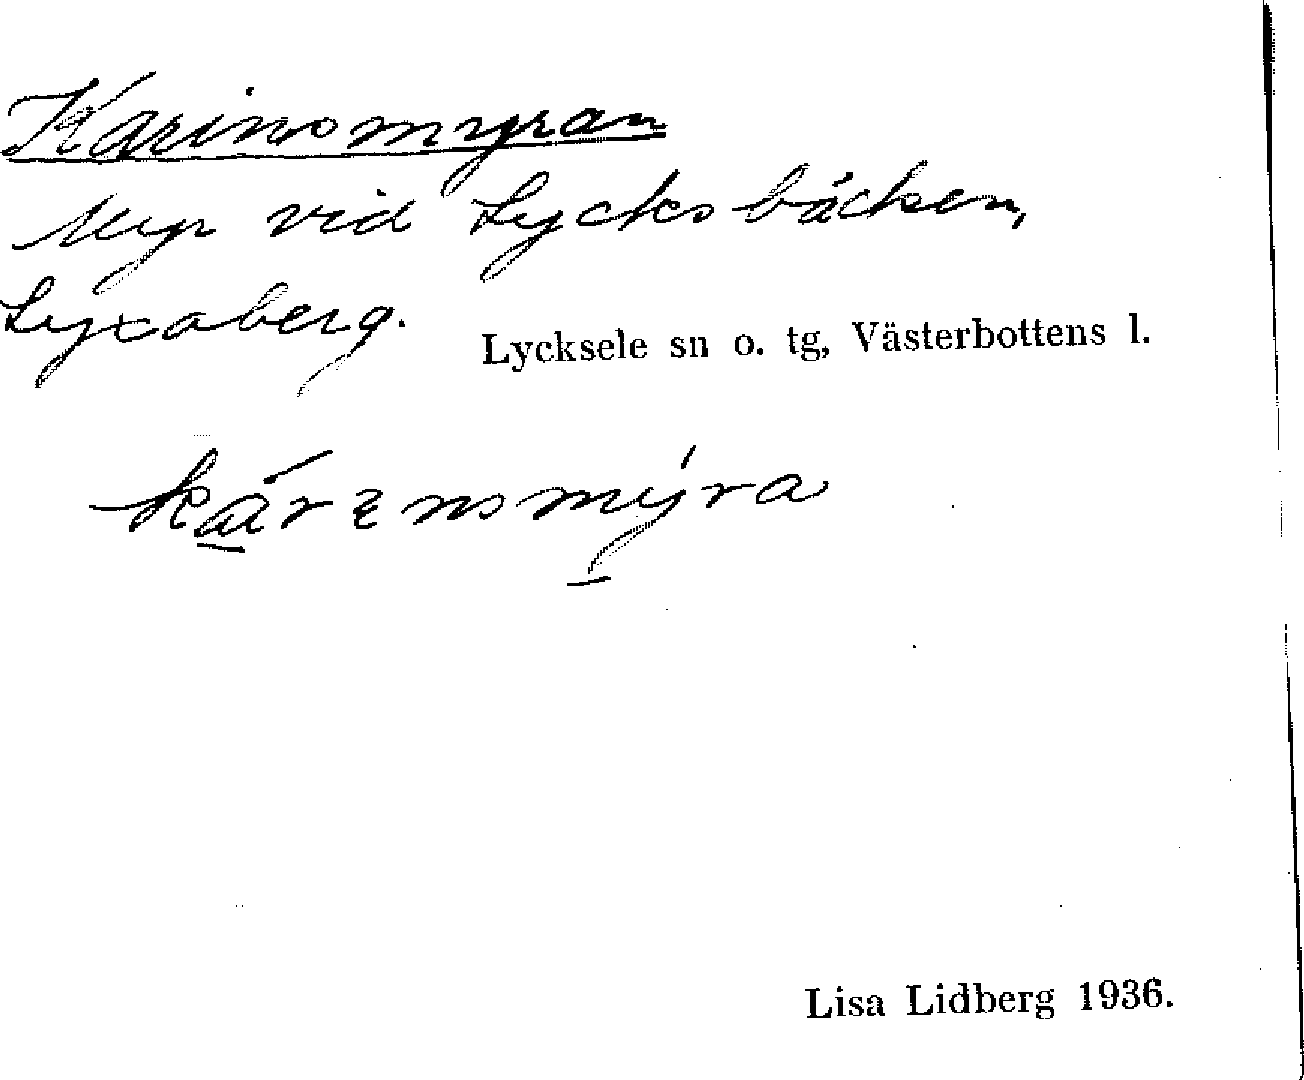 Karinsmyran
Myr vid Lycksbäcken,
Lyxaberg.
Lycksele sn o. tg, Västerbottens l.
kárɛnsmýra
Lisa Lidberg 1936.